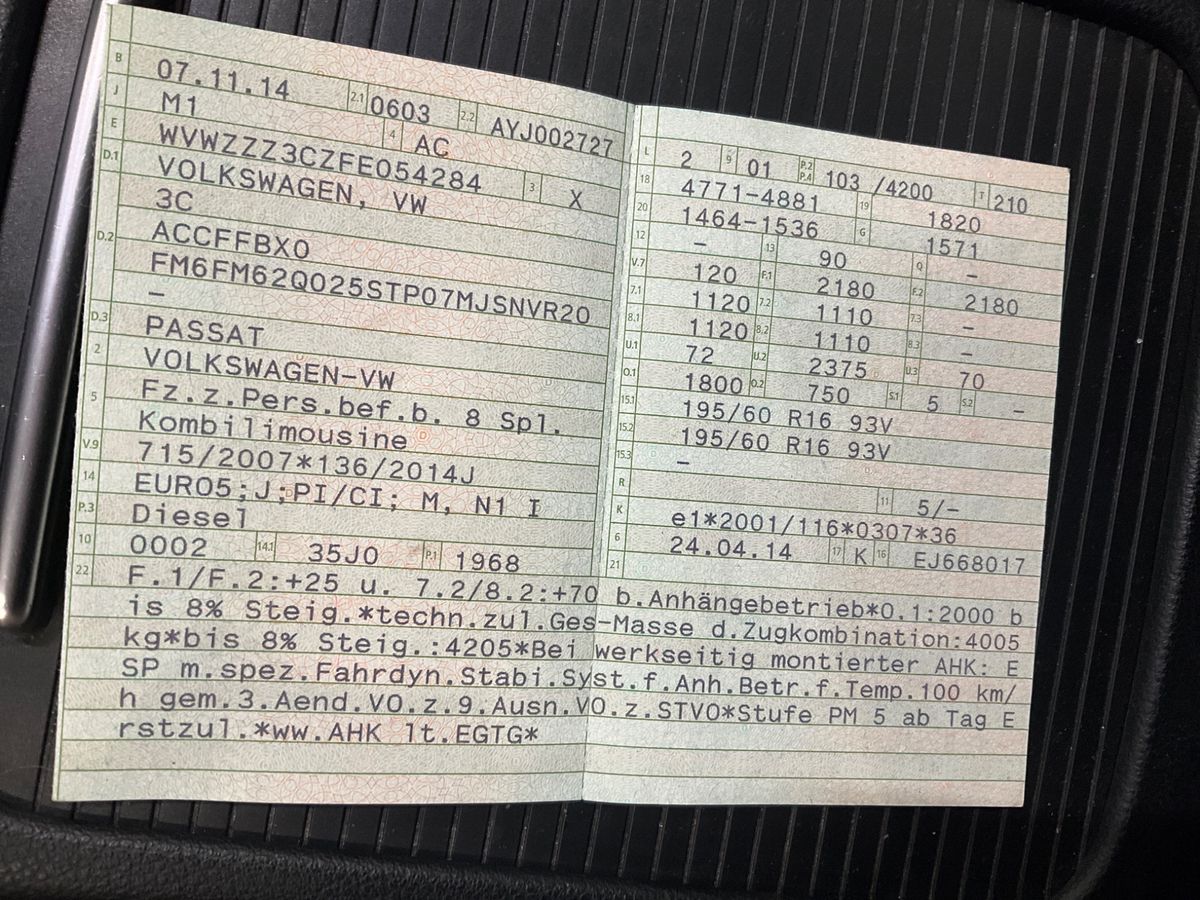 B 07.11.14 2.1 0603 2.2 AYJ002727
J M1 4 AC
E WVWZZZ3CZFE054284 3 X
D.1 VOLKSWAGEN, VW
3C
D.2 ACCFFBX0
FM6FM62Q025STP07MJSNVR20
–
D.3 PASSAT
2 VOLKSWAGEN-VW
5 Fz.z.Pers.bef.b. 8 Spl.
Kombilimousine
V.9 715/2007*136/2014J
14 EURO5;J;PI/CI; M, N1 I
P.3 Diesel
10 0002 14.1 35J0 P.1 1968
L 2 9 01 P.2 P.4 103 /4200 T 210
18 4771-4881 19 1820
20 1464-1536 G 1571
12 – 13 90 Q –
V.7 120 F.1 2180 F.2 2180
7.1 1120 7.2 1110 7.3 –
8.1 1120 8.2 1110 8.3 –
U.1 72 U.2 2375 U.3 70
O.1 1800 O.2 750 S.1 5 S.2 –
15.1 195/60 R16 93V
15.2 195/60 R16 93V
15.3 –
R 11 5/–
K e1*2001/116*0307*36
6 24.04.14 17 K 16 EJ668017
21
22 F.1/F.2:+25 u. 7.2/8.2:+70 b.Anhängebetrieb*O.1:2000 b
is 8% Steig.*techn.zul.Ges-Masse d.Zugkombination:4005
kg*bis 8% Steig.:4205*Bei werkseitig montierter AHK: E
SP m.spez.Fahrdyn.Stabi.Syst.f.Anh.Betr.f.Temp.100 km/
h gem.3.Aend.VO.z.9.Ausn.VO.z.STVO*Stufe PM 5 ab Tag E
rstzul.*ww.AHK lt.EGTG*